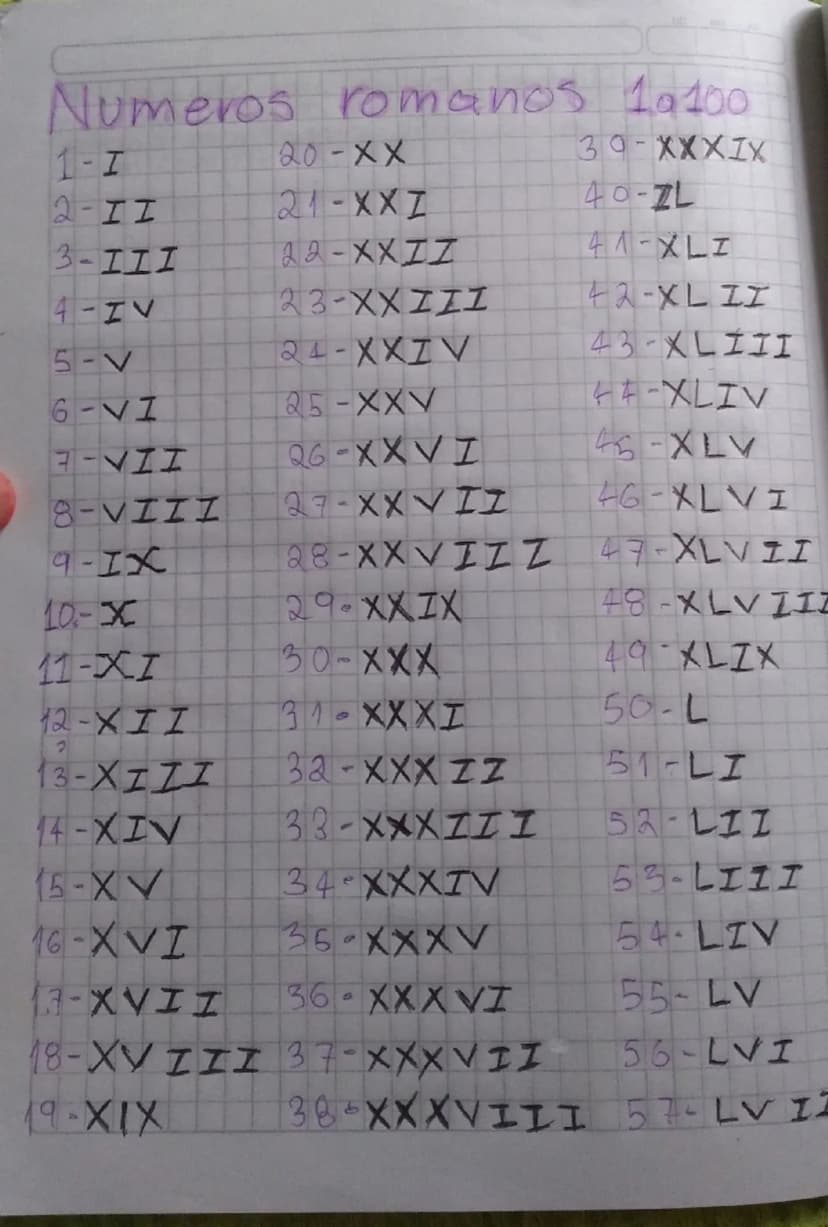 Numeros romanos 1a100
1-I
2-II
3-III
4-IV
5-V
6-VI
7-VII
8-VIII
9-IX
10-X
11-XI
12-XII
13-XIII
14-XIV
15-XV
16-XVI
17-XVII
18-XVIII
19-XIX
20-XX
21-XXI
22-XXII
23-XXIII
24-XXIV
25-XXV
26-XXVI
27-XXVII
28-XXVIII
29-XXIX
30-XXX
31-XXXI
32-XXXII
33-XXXIII
34-XXXIV
35-XXXV
36-XXXVI
37-XXXVII
38-XXXVIII
39-XXXIX
40-IL
41-XLI
42-XLII
43-XLIII
44-XLIV
45-XLV
46-XLVI
47-XLVII
48-XLVIII
49-XLIX
50-L
51-LI
52-LII
53-LIII
54-LIV
55-LV
56-LVI
57-LVII